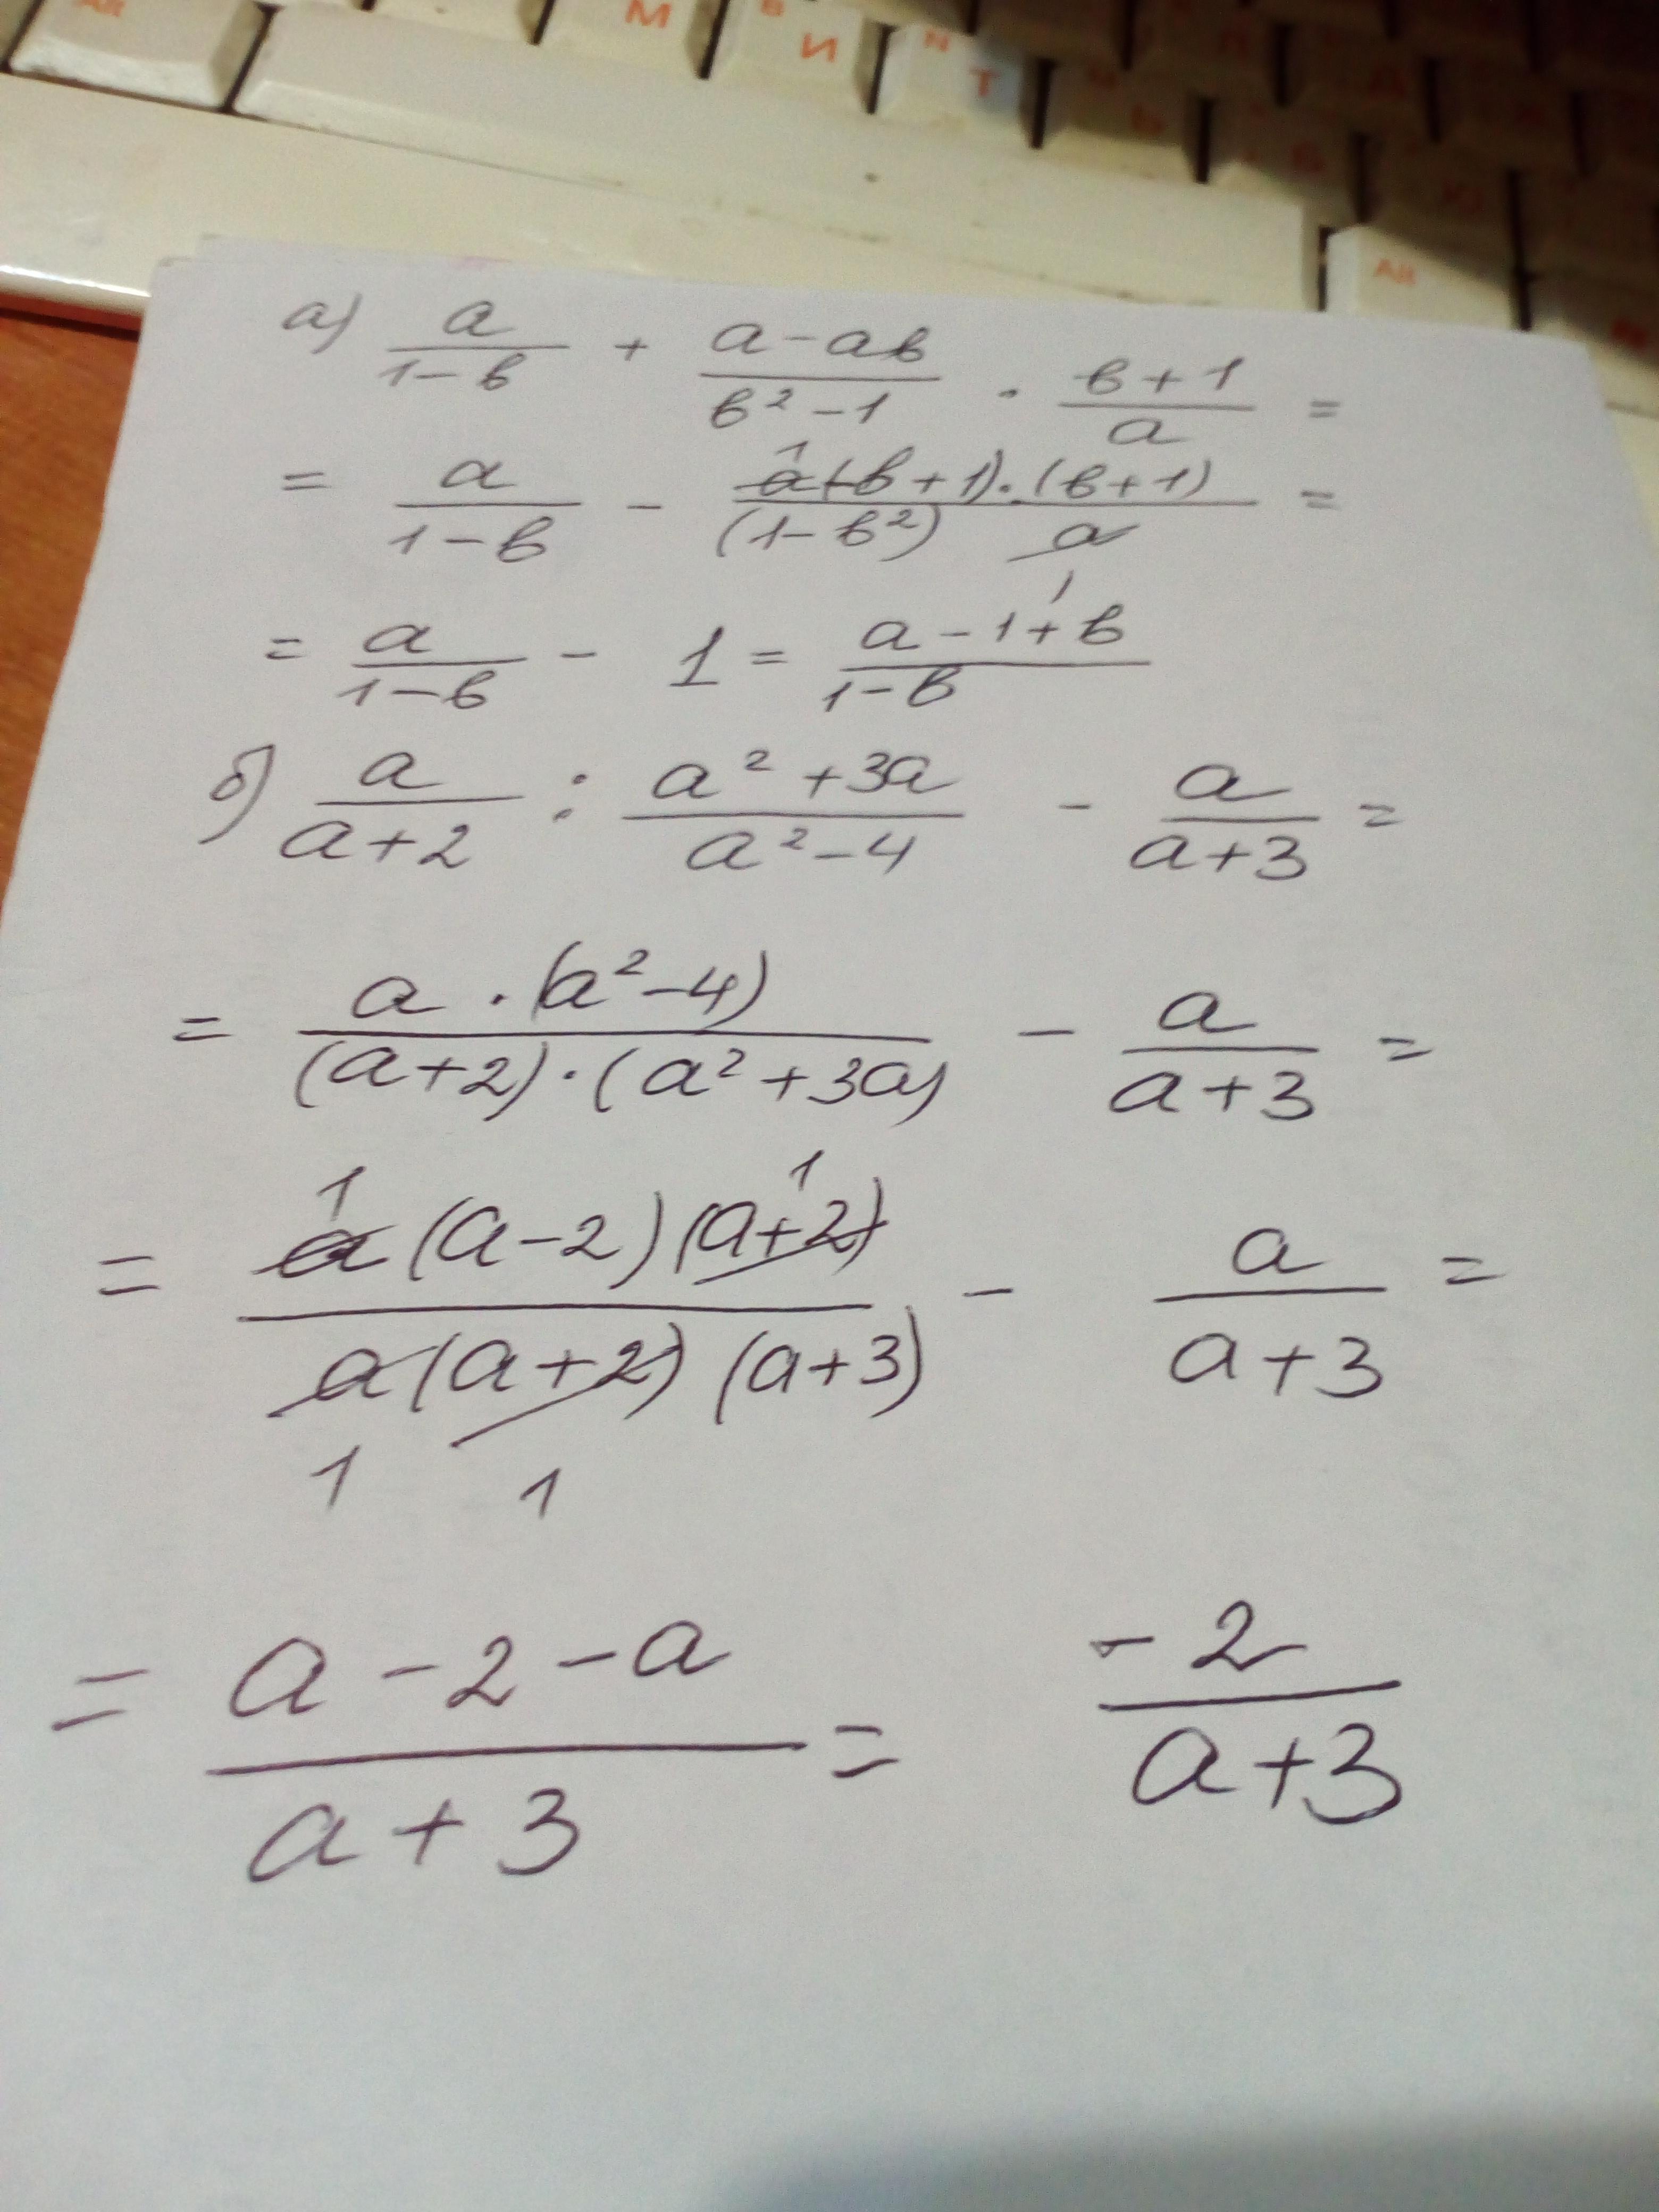 Alt
М
В
И
N
Т
Ь
Б
Ю
Alt
а) a/(1-b) + (a-ab)/(b²-1) · (b+1)/a =
= a/(1-b) - (a(-b+1)·(b+1))/((1-b²) a) =
1
1
= a/(1-b) - 1 = (a-1+b)/(1-b)
б) a/(a+2) : (a²+3a)/(a²-4) - a/(a+3) =
= (a·(a²-4))/((a+2)·(a²+3a)) - a/(a+3) =
1 1
= (a(a-2)(a+2))/(a(a+2)(a+3)) - a/(a+3) =
1 1
= (a-2-a)/(a+3) = -2/(a+3)